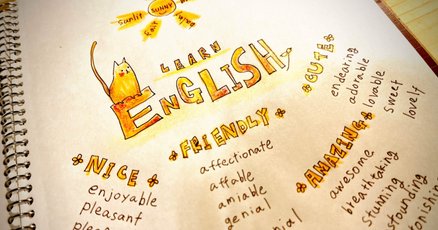 sunlit
SUNNY
LEARN
ENGLISH
CUTE
endeating
adorable
lovable
sweet
lovely
FRIENDLY
affectionate
affable
amiable
genial
NICE
enjoyable
pleasant
AMAZING
awesome
breatheating
stunning
stounding
tonishing